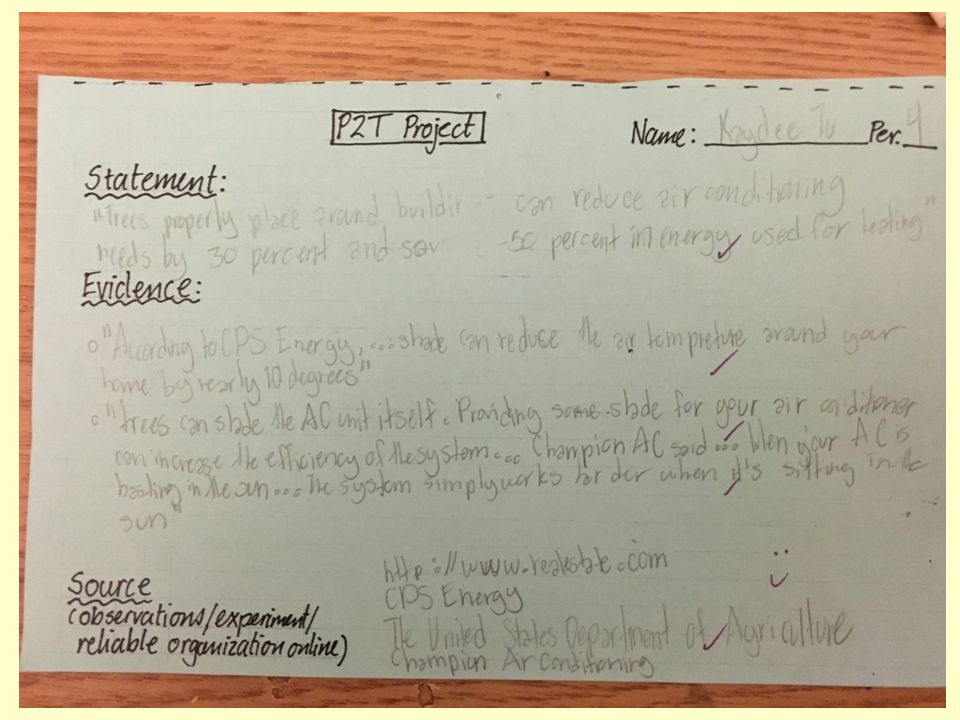 P2T Project
Name: Kaydee Tu Per. 4
Statement:
"Trees properly place around buildin - can reduce air conditioning
needs by 30 percent and sav -50 percent in energy used for heating"
Evidence:
"According to CPS Energy, ...shade can reduce the air tempreture around your
home by nearly 10 degrees"
"trees can shade the AC unit itself. Providing some shade for your air conditioner
can increase the efficiency of the system... Champion AC said ... When your AC is
basting in the sun... The system simply works harder when it's sitting in the
sun"
Source
(observations/experiment/
reliable organization online)
http://www.realestate.com
CPS Energy
The United States Department of Agriculture
Champion Air Conditioning